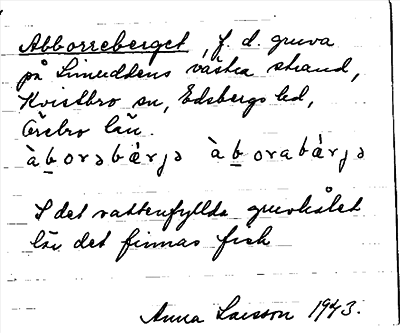 Abborreberget, f. d. gruva
på Limuddens västra strand,
Kvistbro sn, Edsbergs hd,
Örebro län.
àb̲orəbǽrjə àb̲orabǽrjə
I det vattenfyllda gruvhålet
lär det finnas fisk
Anna Larsson 1943.